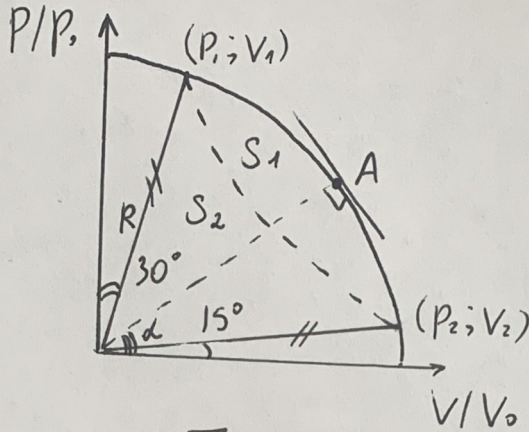 P/P,
(P₁; V₁)
S₁
A
R
S₂
30°
α
15°
(P₂; V₂)
V/V₀